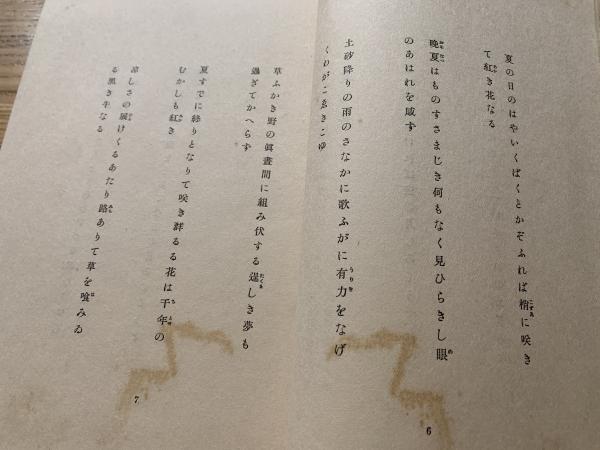 夏の日のはやいくばくとかぞふれば梢に咲き
て紅き花なる
晩夏はものすさまじき何もなく見ひらきし眼
のあはれを咸ず
土砂降りの雨のさなかに歌ふがに有力をなげ
くわがこゑきこゆ
6
草ふかき野の眞晝間に組み伏する逞しき夢も
過ぎてかへらず
夏すでに終りとなりて咲き群るる花は千年の
むかしも紅き
涼しさの展けくるあたり路ありて草を喰みゐ
る黒き牛なる
7